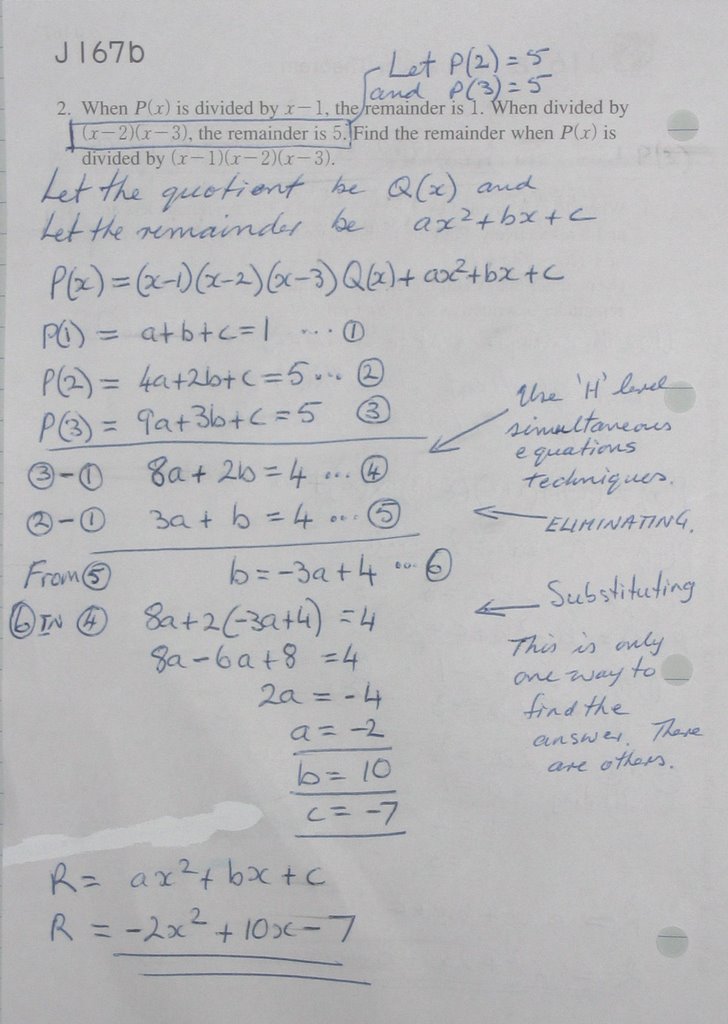 J167b
Let P(2) = 5
and P(3) = 5
2. When P(x) is divided by x−1, the remainder is 1. When divided by
(x−2)(x−3), the remainder is 5. Find the remainder when P(x) is
divided by (x−1)(x−2)(x−3).
Let the quotient be Q(x) and
Let the remainder be ax²+bx+c
P(x) = (x-1)(x-2)(x-3)Q(x)+ax²+bx+c
P(1) = a+b+c=1 ... ①
P(2) = 4a+2b+c=5... ②
P(3) = 9a+3b+c=5 ③
Use 'H' level
simultaneous
equations
techniques.
③-① 8a+2b=4 ... ④
②-① 3a+b=4 ... ⑤
ELIMINATING.
From ⑤ b=-3a+4 ... ⑥
⑥ IN ④ 8a+2(-3a+4)=4
Substituting
8a-6a+8 =4
2a = -4
a = -2
b = 10
c = -7
This is only
one way to
find the
answer. There
are others.
R = ax²+bx+c
R = -2x²+10x-7